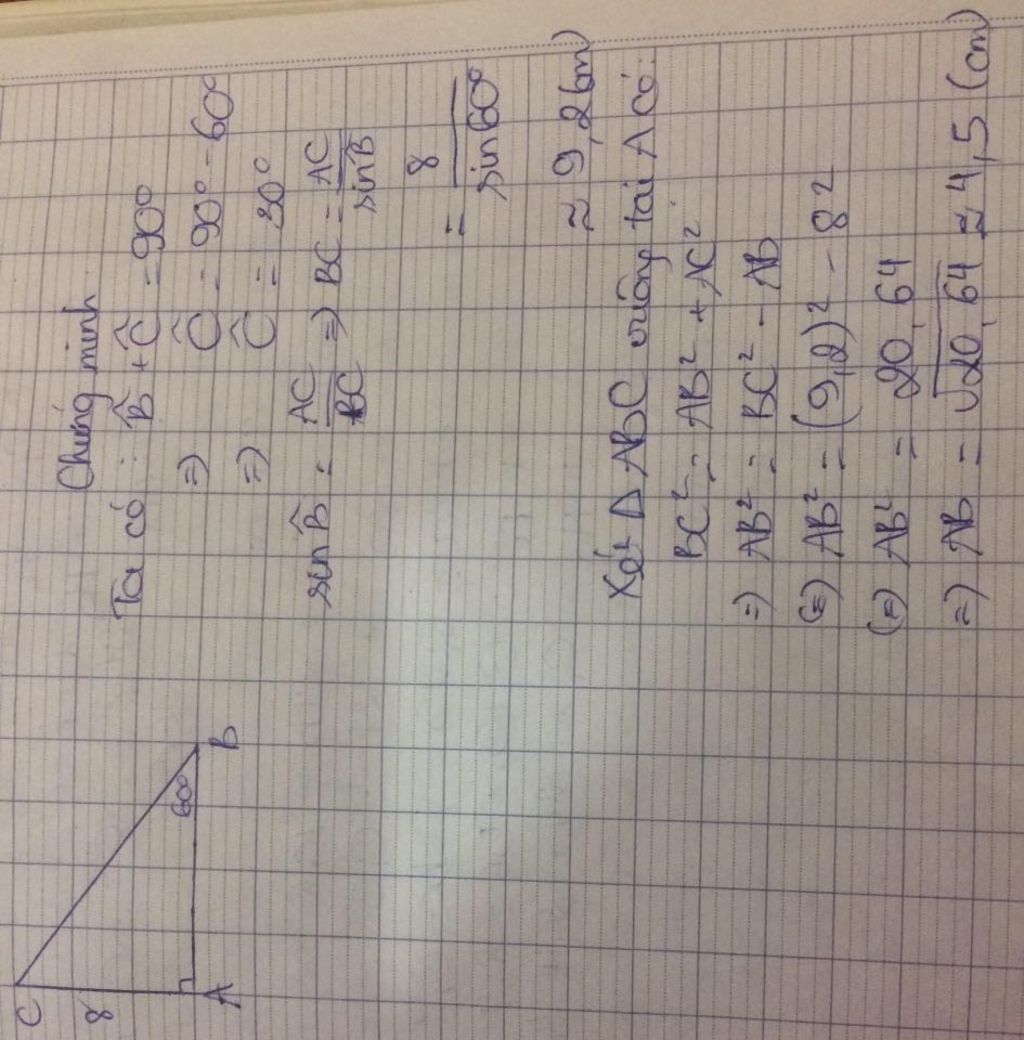 C
8
A
60°
B
Chứng minh
Ta có : B̂ + Ĉ = 90°
=) Ĉ = 90° - 60°
=) Ĉ = 30°
sin B̂ = AC/BC =) BC = AC/sin B̂
= 8/sin 60°
≈ 9,2 (cm)
Xét Δ ABC vuông tại A có:
BC² = AB² + AC²
=) AB² = BC² - AB
(=) AB² = (9,2)² - 8²
(=) AB² = 20,64
=) AB = √20,64 ≈ 4,5 (cm)